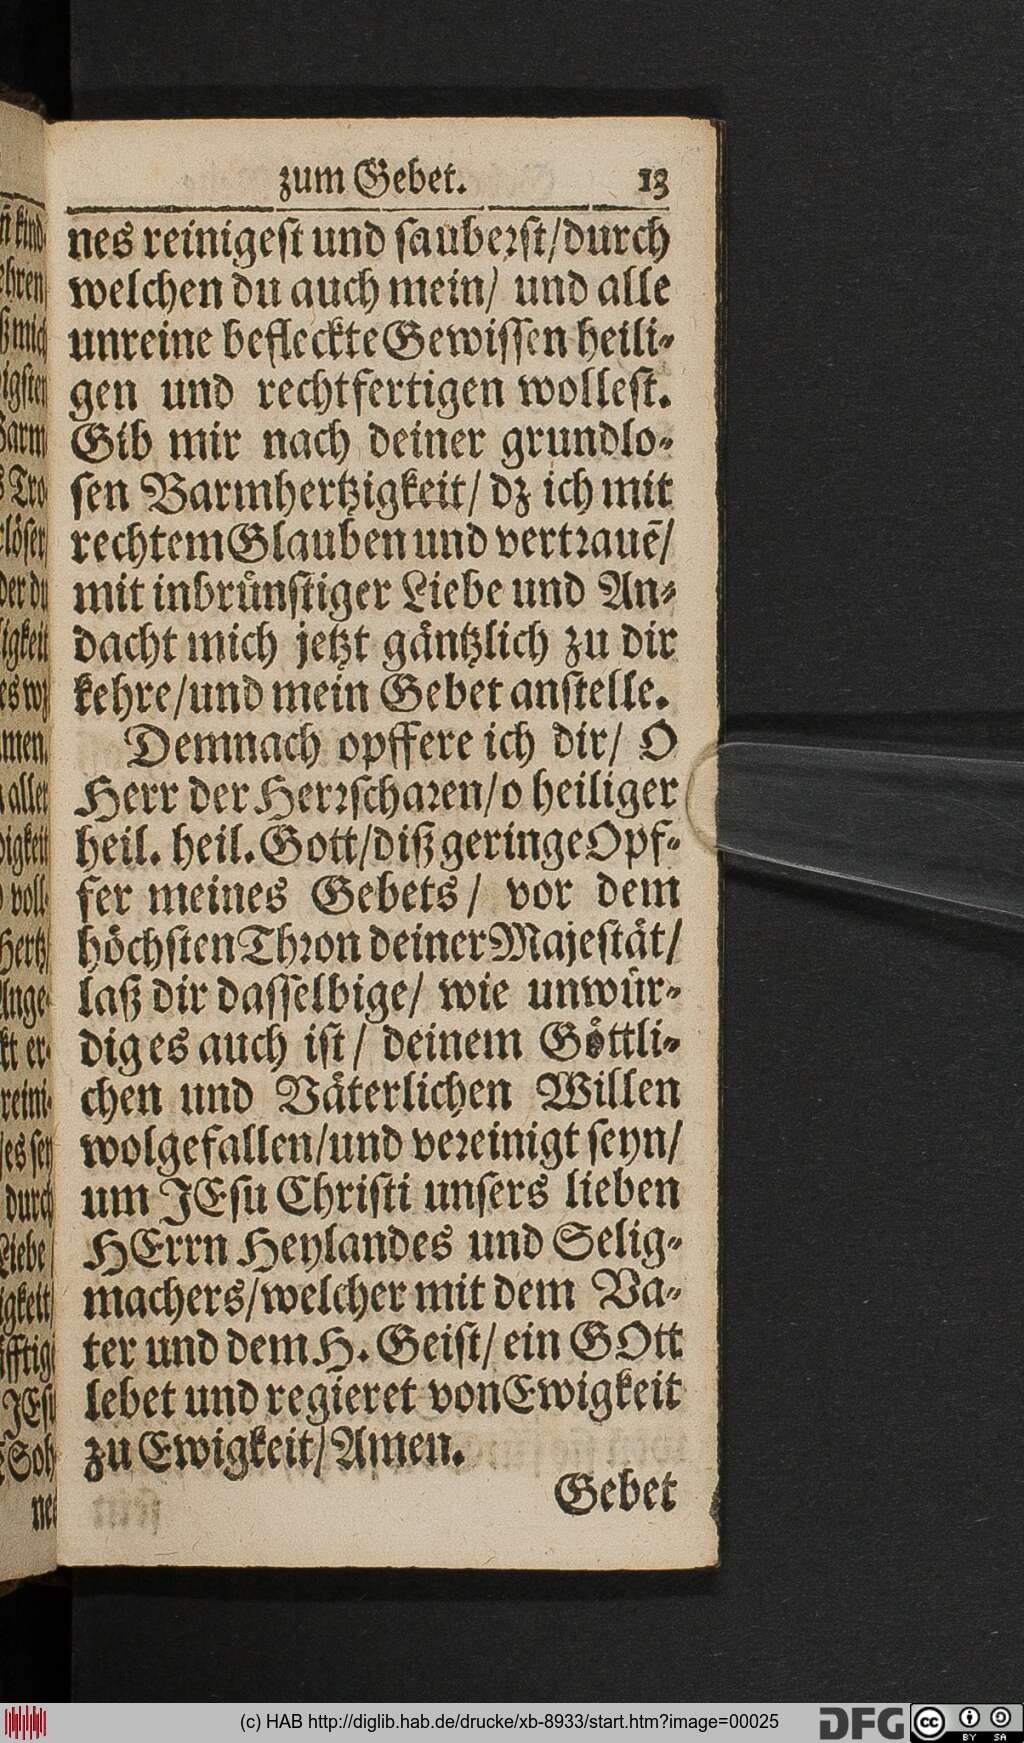 zum Gebet. 13
nes reinigest und sauberst/durch
welchen du auch mein/ und alle
unreine befleckte Gewissen heili-
gen und rechtfertigen wollest.
Gib mir nach deiner grundlo-
sen Barmhertzigkeit/ dz ich mit
rechtem Glauben und vertrauē/
mit inbrünstiger Liebe und An-
dacht mich jetzt gäntzlich zu dir
kehre/und mein Gebet anstelle.
Demnach opffere ich dir/ O
Herr der Herrscharen/o heiliger
heil. heil. Gott/diß geringe Opf-
fer meines Gebets/ vor dem
höchsten Thron deiner Majestät/
laß dir dasselbige/ wie unwür-
dig es auch ist/ deinem Göttli-
chen und Väterlichen Willen
wolgefallen/und vereinigt seyn/
um JEsu Christi unsers lieben
HErrn Heylandes und Selig-
machers/welcher mit dem Va-
ter und dem H. Geist/ ein GOtt
lebet und regieret von Ewigkeit
zu Ewigkeit/Amen.
Gebet
(c) HAB http://diglib.hab.de/drucke/xb-8933/start.htm?image=00025
DFG
cc
BY SA